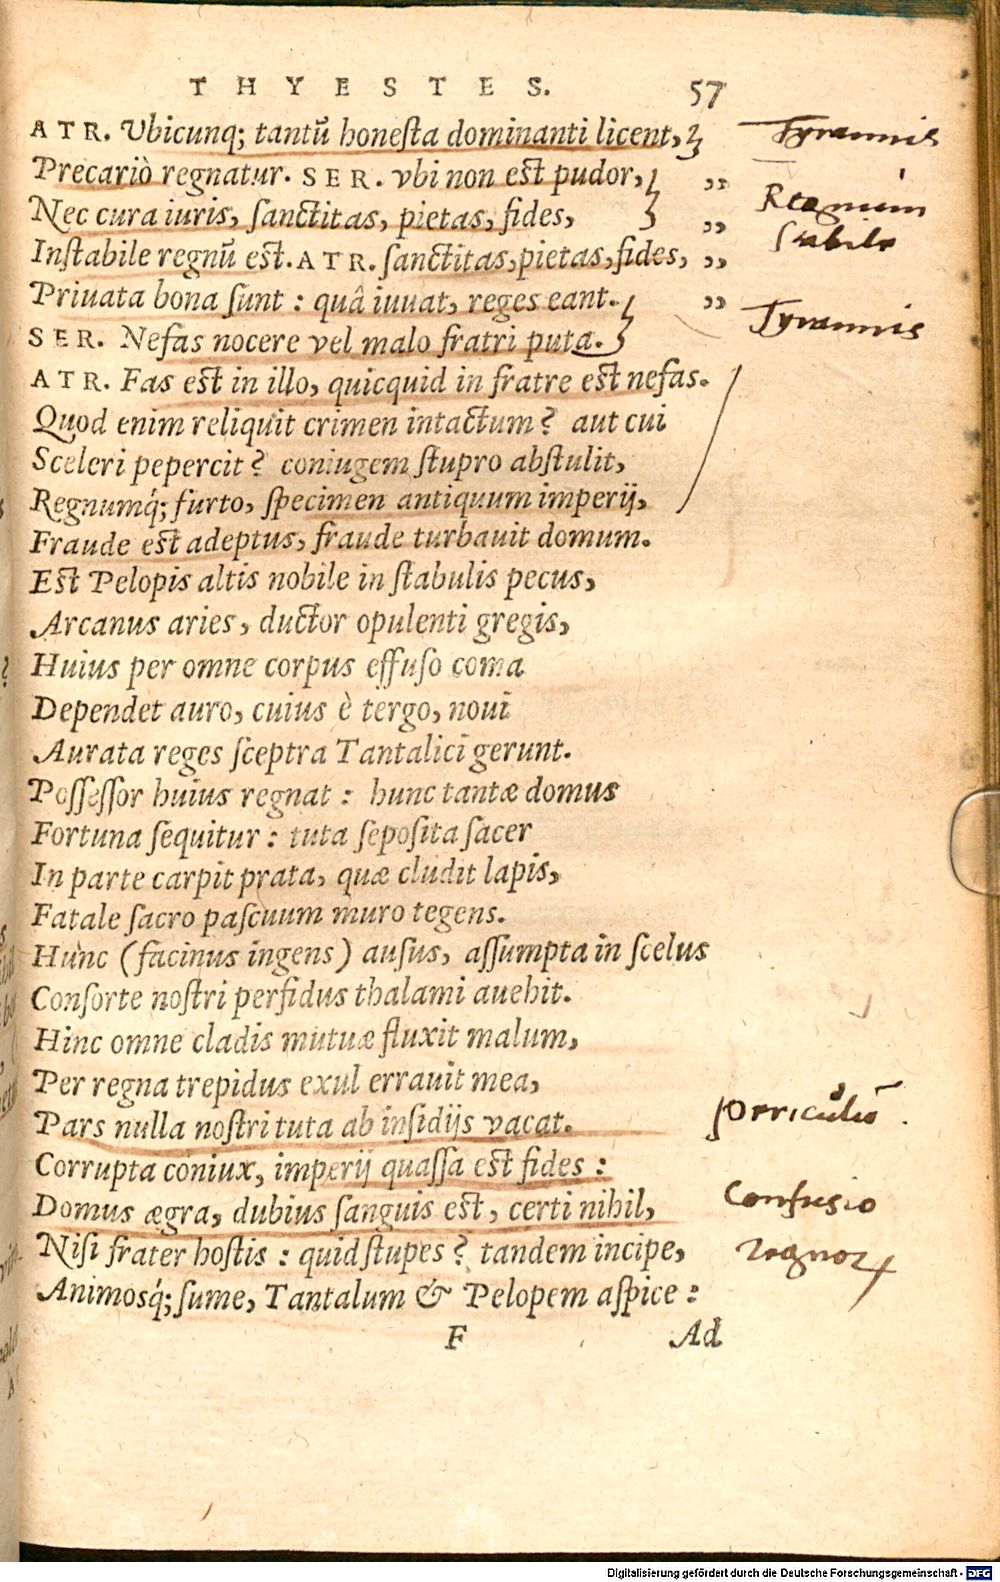 THYESTES. 57
ATR. Vbicunq; tantũ honeſta dominanti licent,
Precariò regnatur. SER. vbi non eſt pudor,
Nec cura iuris, ſanctitas, pietas, fides,
Inſtabile regnũ eſt. ATR. ſanctitas, pietas, fides,
Priuata bona ſunt: quâ iuuat, reges eant.
SER. Nefas nocere vel malo fratri puta.
ATR. Fas eſt in illo, quicquid in fratre eſt nefas.
Quod enim reliquit crimen intactum? aut cui
Sceleri pepercit? coniugem ſtupro abſtulit,
Regnumq́; furto, ſpecimen antiquum imperij,
Fraude eſt adeptus, fraude turbauit domum.
Eſt Pelopis altis nobile in ſtabulis pecus,
Arcanus aries, ductor opulenti gregis,
Huius per omne corpus effuſo coma
Dependet auro, cuius è tergo, noui
Aurata reges ſceptra Tantalici gerunt.
Poſſeſſor huius regnat: hunc tantæ domus
Fortuna ſequitur: tuta ſepoſita ſacer
In parte carpit prata, quæ cludit lapis,
Fatale ſacro paſcuum muro tegens.
Hunc (facinus ingens) auſus, aſſumpta in ſcelus
Conſorte noſtri perfidus thalami auehit.
Hinc omne cladis mutuæ fluxit malum,
Per regna trepidus exul errauit mea,
Pars nulla noſtri tuta ab inſidijs vacat.
Corrupta coniux, imperij quaſſa eſt fides:
Domus ægra, dubius ſanguis eſt, certi nihil,
Niſi frater hoſtis: quid ſtupes? tandem incipe,
Animosq́; ſume, Tantalum & Pelopem aſpice:
F Ad
Tyrannis
Regnum
stabile
Tyrannis
Confusio
Digitalisierung gefördert durch die Deutsche Forschungsgemeinschaft - DFG